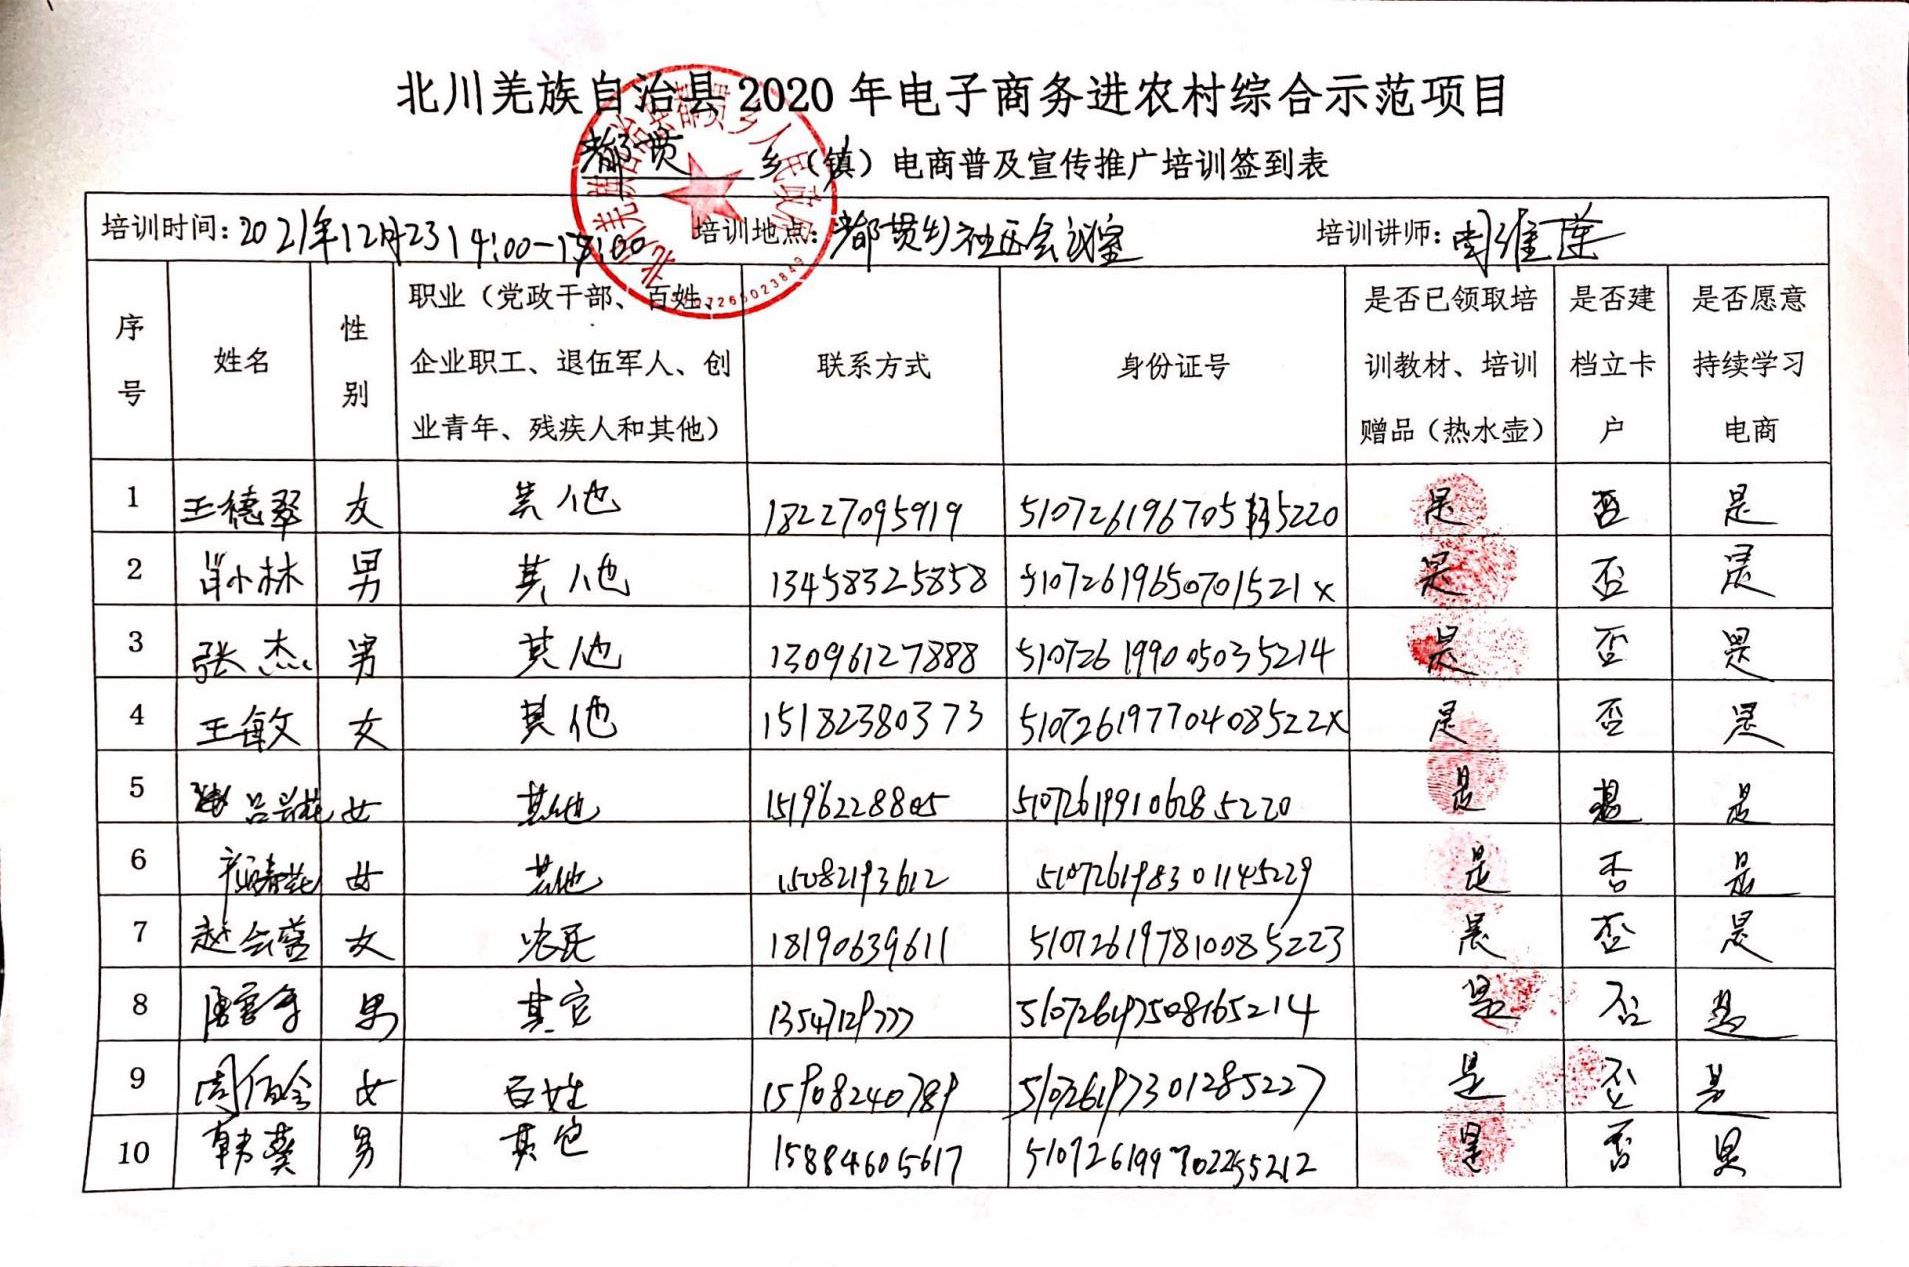 北川羌族自治县 2020 年电子商务进农村综合示范项目
都贯 乡（镇）电商普及宣传推广培训签到表
培训时间：2021年12月23 14:00-17:00 培训地点：都贯乡社区会议室 培训讲师：周维莲
序号 姓名 性别 职业（党政干部、百姓、企业职工、退伍军人、创业青年、残疾人和其他） 联系方式 身份证号 是否已领取培训教材、培训赠品（热水壶） 是否建档立卡户 是否愿意持续学习电商
1 王德翠 女 其他 18227095919 510726196705 5220 是 否 是
2 肖小林 男 其他 13458325858 51072619650701521x 是 否 是
3 张杰 男 其他 13096127888 510726199005035214 是 否 是
4 王敏文 女 其他 15182380373 51072619770408522x 是 否 是
5 吕兴花 女 其他 15196228805 510726199106285220 是 是
6 女 其他 15082193612 510726198301145229 是 否 是
7 赵会蓉 女 农民 18190639611 510726197810085223 是 否 是
8 男 其它 510726197508165214 是 否 是
9 女 百姓 15908240789 510726197301285227 是 否 是
10 韩葵 男 其它 15884605617 510726199702255212 是 否 是